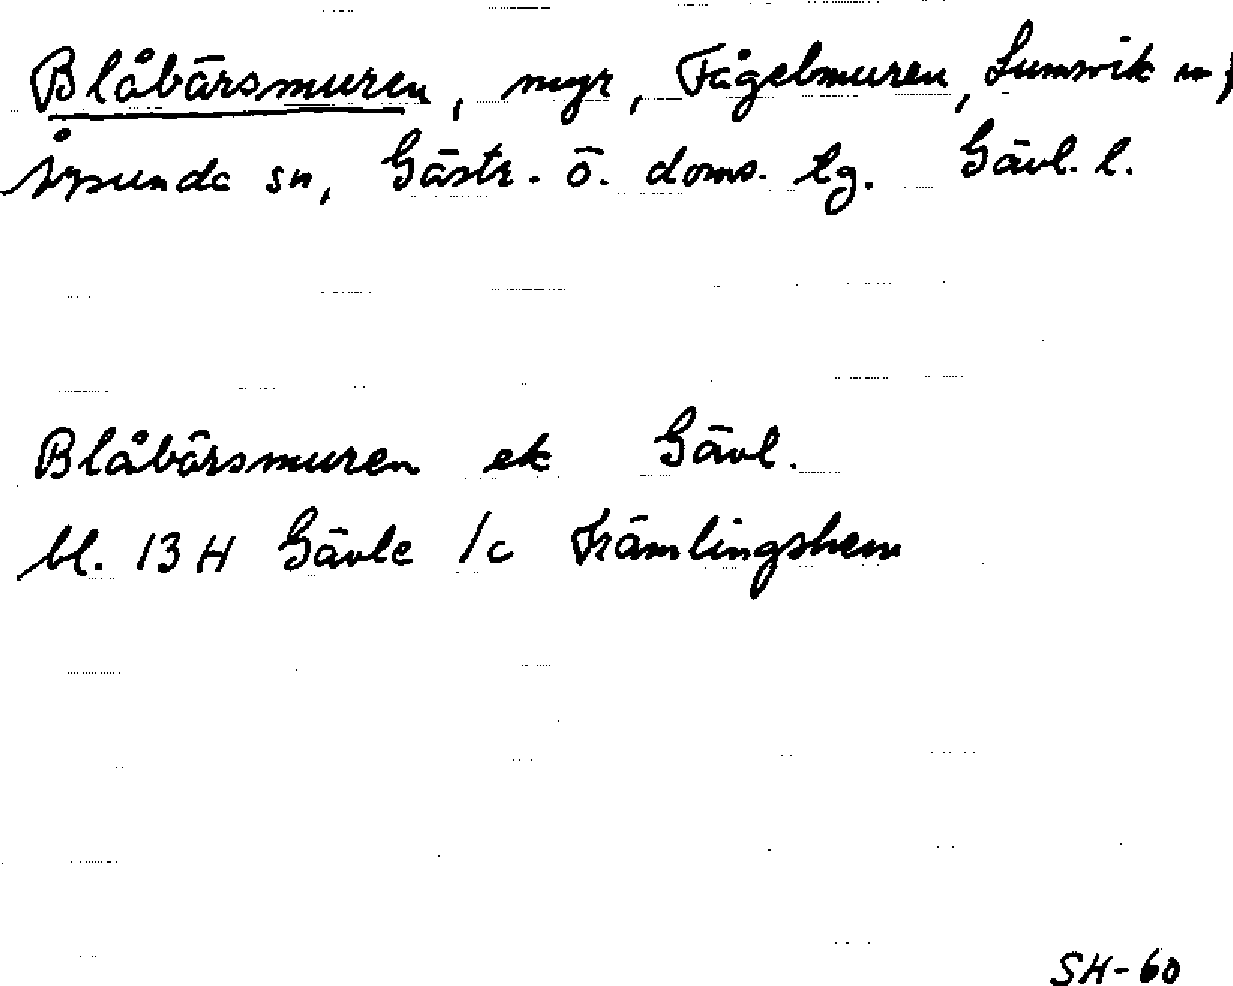 Blåbärsmuren, myr, Fågelmuren, Lumsvik m)
Årsunda sn, Gästr. ö. doms. tg. Gävl. l.
Blåbärsmuren ek Gävl.
bl. 13 H Gävle 1c Främlingshem
SH-60